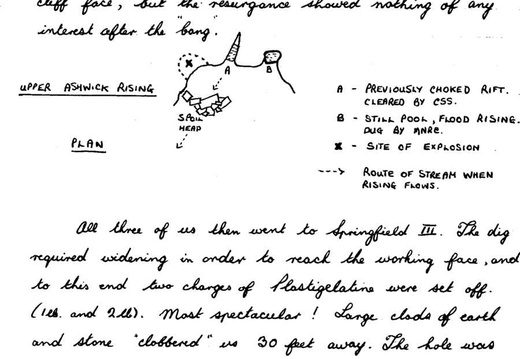 cliff face, but the resurgance showed nothing of any
interest after the "bang".
UPPER ASHWICK RISING
PLAN
X
A
B
SPOIL
HEAP
A - PREVIOUSLY CHOKED RIFT.
CLEARED BY CSS.
B - STILL POOL, FLOOD RISING.
DUG BY MNRC.
X - SITE OF EXPLOSION
---> ROUTE OF STREAM WHEN
RISING FLOWS.
All three of us then went to Springfield III. The dig
required widening in order to reach the working face, and
to this end two charges of Plastigelatine were set off.
(1lb. and 2lb). Most spectacular! Large clods of earth
and stone "clobbered" us 30 feet away. The hole was